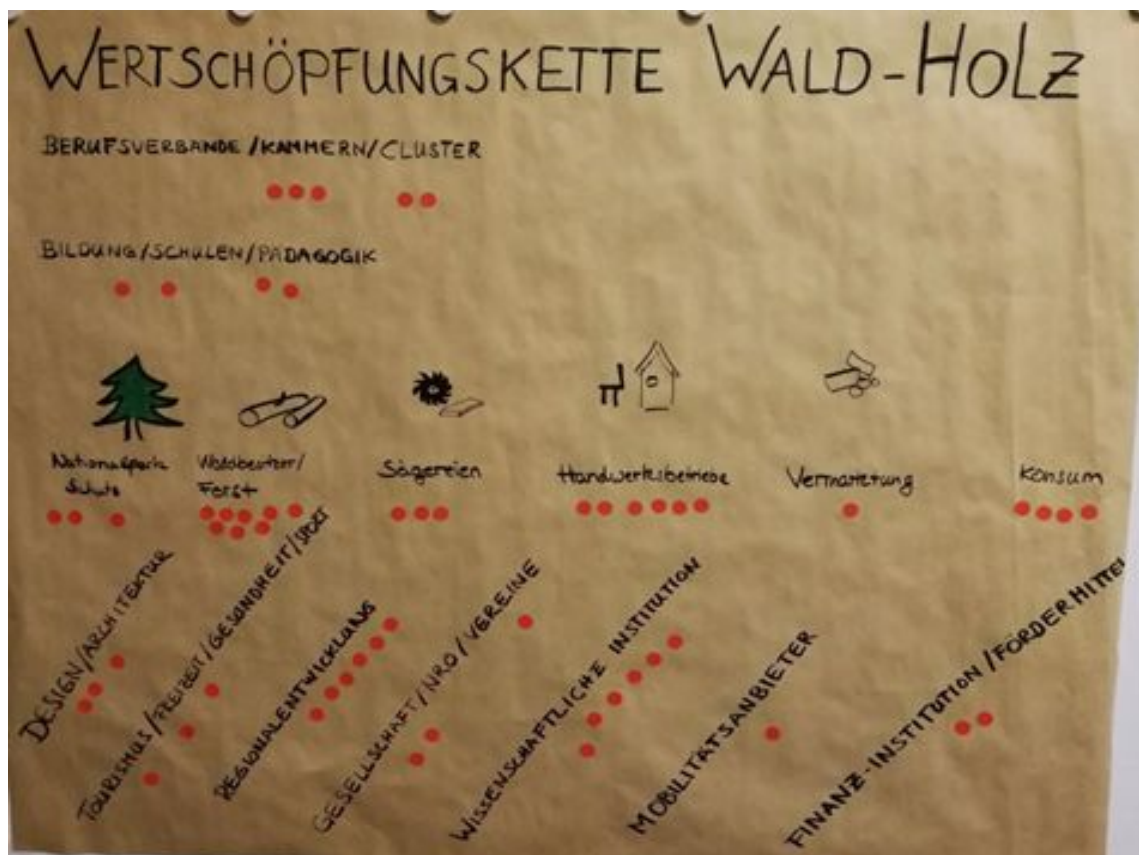 WERTSCHÖPFUNGSKETTE WALD-HOLZ
BERUFSVERBANDE/KAMMERN/CLUSTER
BILDUNG/SCHULEN/PÄDAGOGIK
Nationalpark
Schutz
Waldbesitzer/
Forst
Sägereien
Handwerksbetriebe
Vermarktung
Konsum
DESIGN/ARCHITEKTUR
TOURISMUS/FREIZEIT/GESUNDHEIT/SPORT
REGIONALENTWICKLUNG
GESELLSCHAFT/NRO/VEREINE
WISSENSCHAFTLICHE INSTITUTION
MOBILITÄTSANBIETER
FINANZ-INSTITUTION/FÖRDERMITTEL